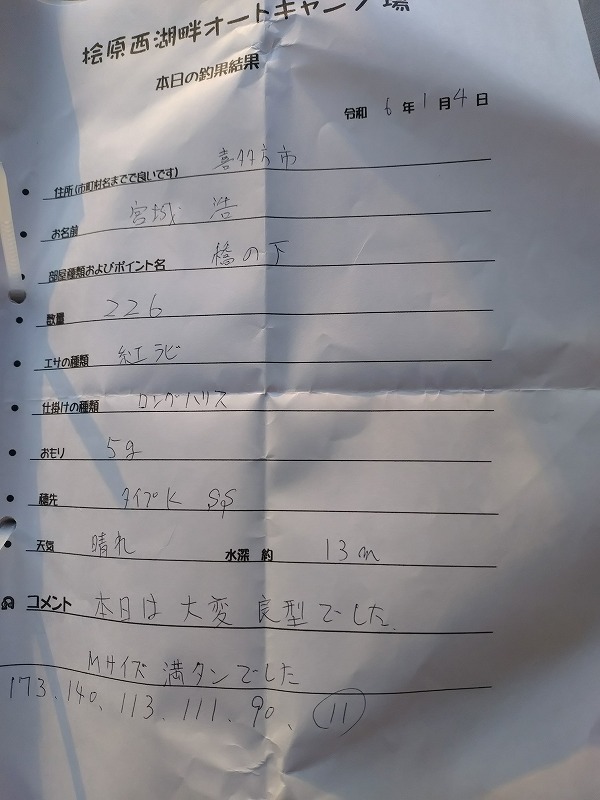 桧原西湖畔オートキャンプ場
本日の釣果結果
令和 6 年 1 月 4 日
住所(市町村名までで良いです) 喜多方市
お名前 宮城 浩
部屋種類およびポイント名 橋の下
数量 226
エサの種類 紅ラビ
仕掛けの種類 ロングハリス
おもり 5g
穂先 タイプK SS
天気 晴れ 水深 約 13m
コメント 本日は大変良型でした。
Mサイズ満タンでした
173、140、113、111、90、11